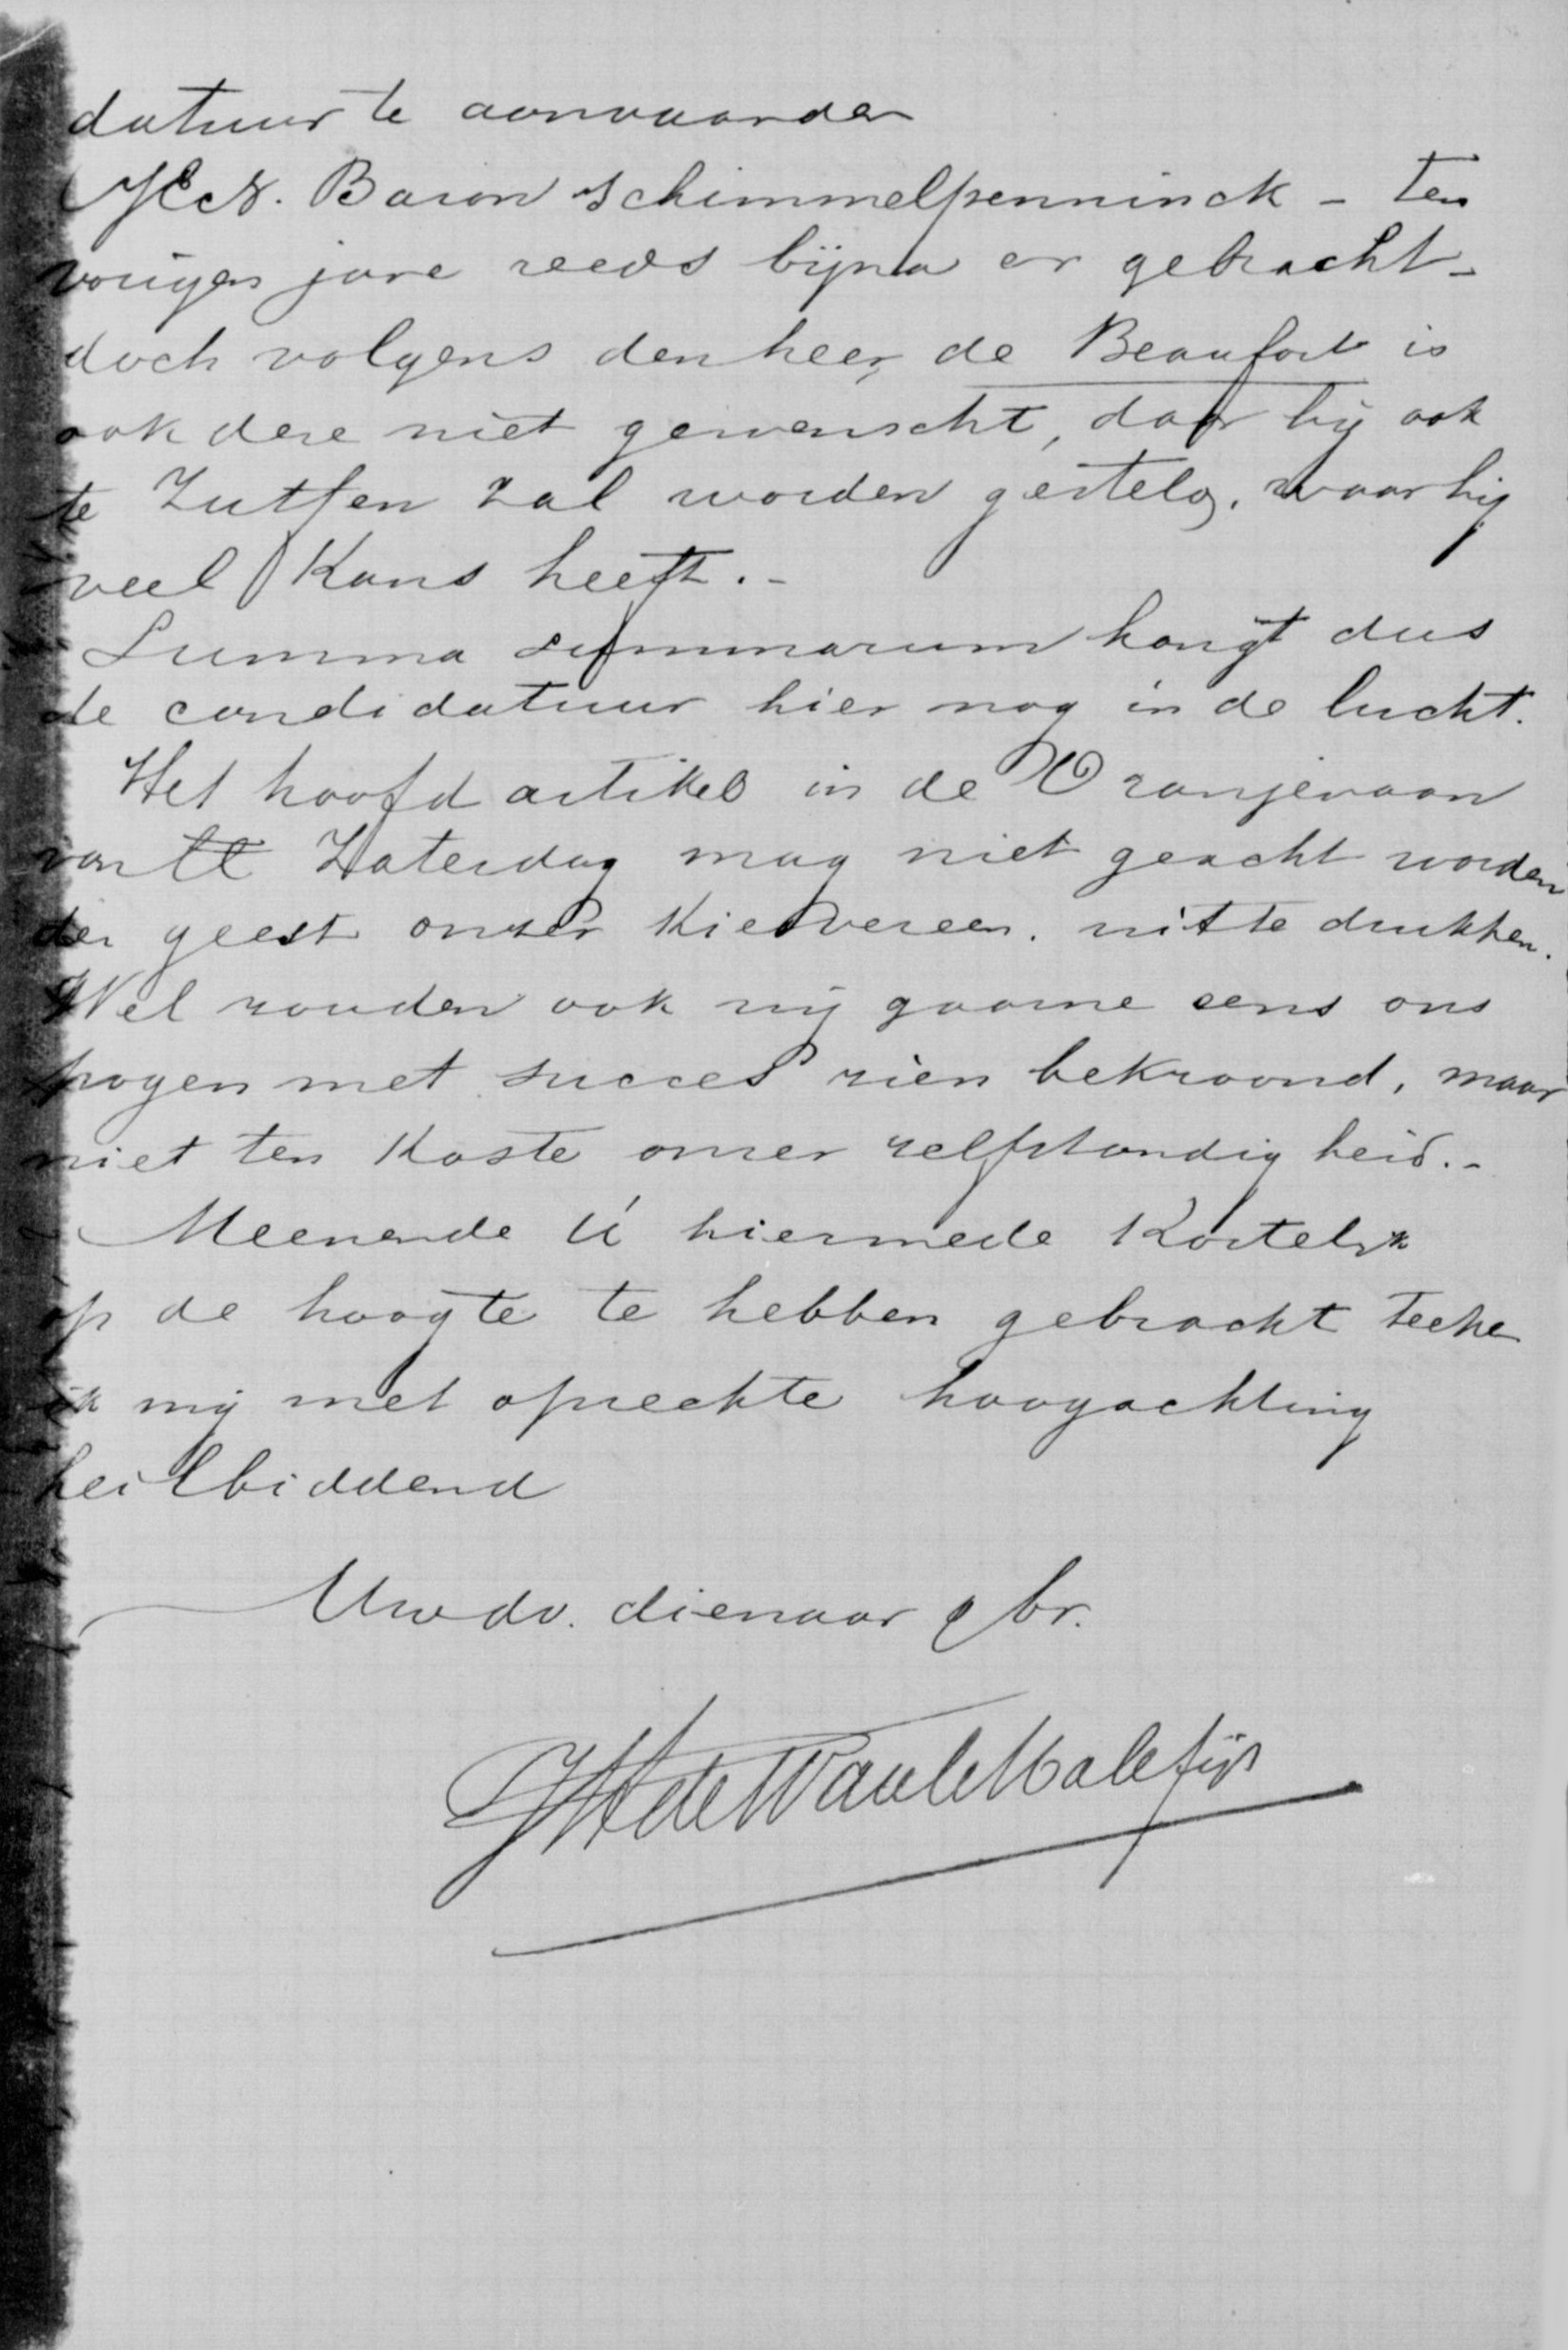 datuur te aanvaarden
Baron Schimmelpenninck – ten
vorigen jare reeds bijna er gebracht –
doch volgens den heer de Beaufort is
ook deze niet gewenscht, daar hij ook
te Zutfen zal worden gesteld, waar hij
veel kans heeft. –
Summa summarum hangt dus
de candidatuur hier nog in de lucht.
Het hoofdartikel in de Oranjevaan
van ll Zaterdag mag niet geacht worden
den geest onzer Kiesvereen. uit te drukken.
Wel zouden ook wij gaarne eens ons
pogen met succes zien bekroond, maar
niet ten koste onzer zelfstandigheid. –
Meenende Ú hiermede kortelijk
op de hoogte te hebben gebracht teeken
ik mij met oprechte hoogachting
heilbiddend
Uwdv. dienaar & br.
JH de Waal Malefijt